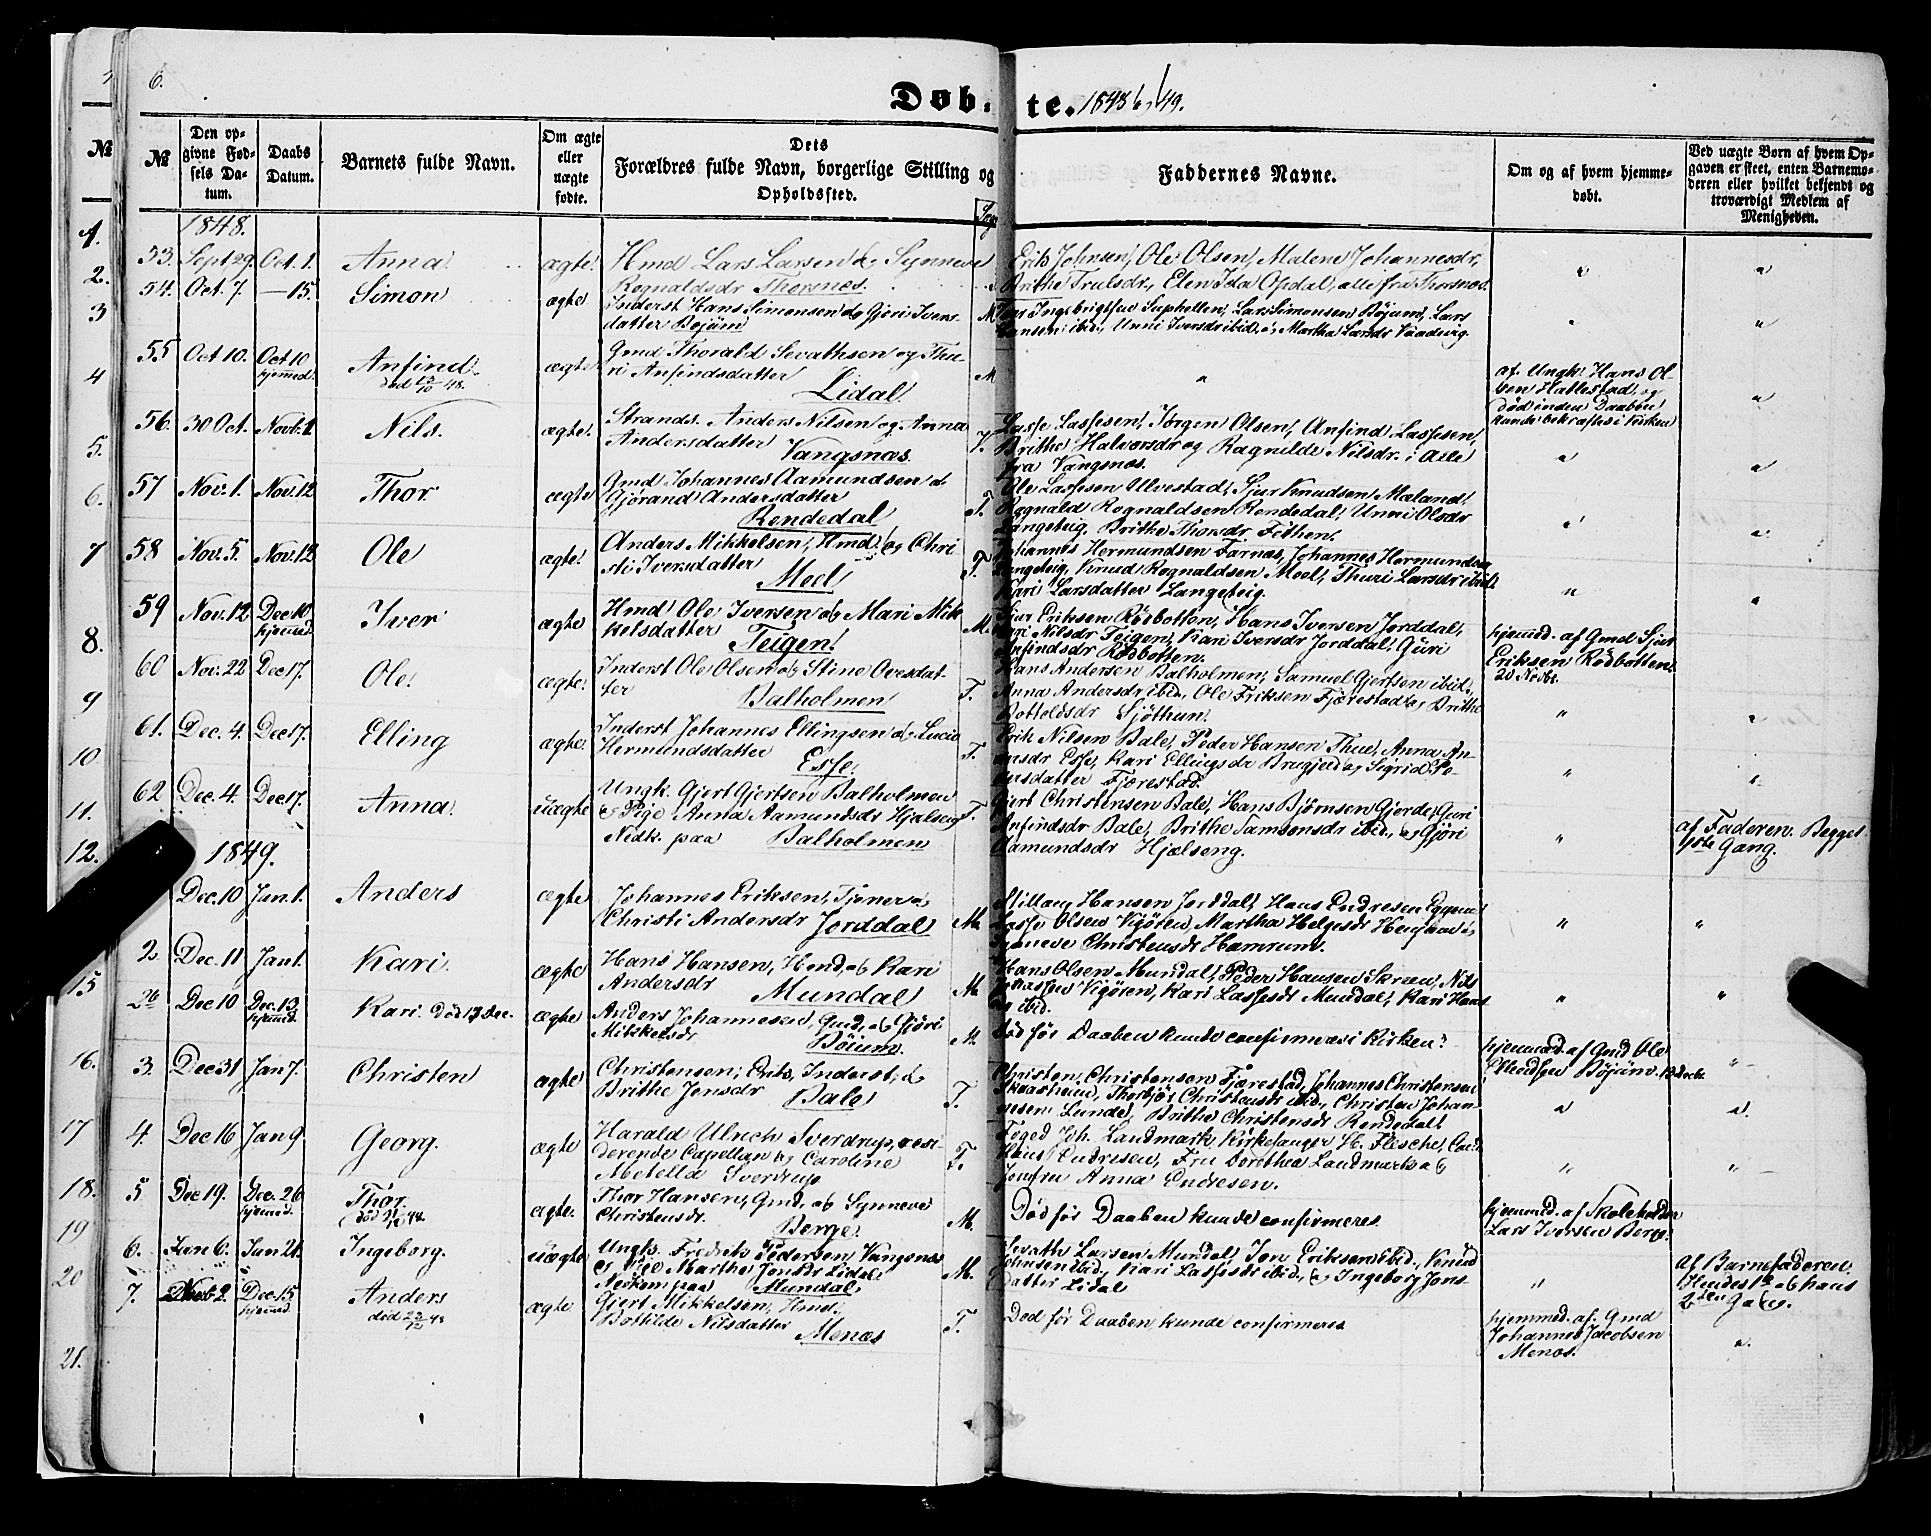 6.
Døbte. 1848 & 49.
№
Den opgivne Fødsels Datum.
Daabs Datum.
Barnets fulde Navn.
Om ægte eller uægte fødte.
Dets Forældres fulde Navn, borgerlige Stilling og Opholdssted.
Sogn
Faddernes Navne.
Om og af hvem hjemmedøbt.
Ved uægte Børn af hvem Opgaven er skeet, enten Barnemoderen eller hvilket bekjendt og troværdigt Medlem af Menigheden.
1848.
53. Sept 29. Oct. 1. Anna ægte! Hmd Lars Larsen & Synneve
Rognaldsdr Thorsnes.
Erik Johnsen, Ole Olsen, Malene Johannesdr,
Brithe Trulsdr, Elen Ida Opdal, alle fra Thorsnes.
54. Oct. 7. —15. Simon ægte Inderst Hans Simonsen & Gjøri Ivers-
datter Bøjum M
Ingebrigtsen Suphellen, Lars Simonsen Böjum, Lars
Hansen ibid., Unni Iversdr ibid. & Martha Larsdr
55 Oct 10. Oct 10 hjemmed. Anfind. ægte Gmd Thorald Sevathsen og Thu-
ri Anfindsdatter Lidal M
af Ungk. Hans Ol-
sen Hatlestad, og
død inden Daaben
kunde bekræftes i Kirken
56. 30 Oct. Novb. 1 Nils. ægte! Strands. Anders Nilsen og Anna
Andersdatter Vangsnæs. V.
Lasse Lassesen, Jørgen Olsen, Anfind Lassesen,
Brithe Halvorsdr og Ragnilde Nilsdr. Alle
fra Vangsnæs.
57 Nov. 1. Nov. 12 Thor ægte Gmd Johannes Aamundsen &
Gjørand Andersdatter
Rendedal F.
Ole Lassesen Ulvestad, Sjur Knudsen Mæland,
Rognald Rognaldsen Rendedal, Unni Olsdr
Brithe Thorsdr Fithen.
58 Nov. 5. Nov. 12 Ole ægte! Anders Mikkelsen, Hmd. og Chri
sti Iversdatter
Moel F.
Johannes Hermundsen Farnæs, Johannes Hermundsen
Knud Rognaldsen Moel, Thuri Larsdr ibid.
Kari Larsdatter Langeteig.
59 Nov. 12 Dec. 10 hjemmed. Iver ægte Hmd Ole Iversen & Mari Mik
kelsdatter Teigen! M.
Sjur Eriksen Rödbotten, Hans Iversen Jorddal,
Nilsdr Teigen, Kari Iversdr Jorddal, Guri
Anfindsdr Rödbotten.
hjemmd. af Gmd Sjur
Eriksen Rödbotten
20 Novbr.
60 Nov. 22 Dec 17. Ole! ægte! Inderst Ole Olsen & Stine Overdat-
ter Balholmen F.
Hans Andersen Balholmen, Samuel Gjertsen ibid.,
Anna Andersdr ibid., Ole Eriksen Fjærestad & Brithe
Botholdsdr Sjöthun.
61. Dec. 4. Dec 17. Elling ægte. Inderst Johannes Ellingsen & Lucia
Hermundsdatter Esse. F.
Erik Nilsen Bale, Peder Hansen Thue, Anna
Esse, Kari Ellingsdr & Sigrid Pe-
dersdatter Fjærestad.
62 Dec. 4. Dec 17. Anna. uægte Ungk. Gjert Gjertsen Balholmen
& Pige Anna Aamundsdr Hjelseng
Nedk. paa Balholmen F.
Gjert Christensen Bale, Hans Björnsen Gjerde, Guri
Anfindsdr Bale, Brithe Samsonsdr ibid, & Gjöri
Aamundsdr Hjælseng.
af Faderen. Begges
1ste Gang.
1849.
Dec. 10 Jan. 1. Anders ægte Johannes Eriksen, Tjener &
Christi Andersdr Jorddal M.
Hansen Jorddal, Hans Endresen
Lasse Olsen Vigören, Martha Helgesdr &
Synneve Christensdr Hamrum.
2 Dec. 11 Jan 1. Kari. ægte Hans Hansen, Hmd, & Kari
Andersdr Mundal M.
Hans Olsen Mundal, Peder Hansen Skreen, Nils
Vigören, Kari Lassesdr Mundal, Kari Hans
dr ibid.
2b Dec 10 Dec. 13 hjemmed. Kari. død 13 Dec. ægte Anders Johannesen, Gmd, & Gjöri
Mikkelsdr Böium. M.
Død før Daaben kunde confirmeres i Kirken.
hjemmed. af Gmd Ole
Böjum. 13 Decbr.
3. Dec 31 Jan 7. Christen ægte Christensen, Erik, Inderst, &
Brithe Jensdr Bale F.
Christen Christensen Fjærestad, Johannes Christensen
Thorbjör Christensdr ibid, Christen Johan-
nesen Lunde, Brithe Christensdr Rendedal,
4. Dec 16 Jan 9. Georg. ægte Harald Ulrich Sverdrup, resi-
derende Capellan & Caroline
Metella Sverdrup F.
Foged Joh. Landmark, Kirkesanger H. Flesche, Cand.
Hans Endresen, Fru Dorothea Landmark &
Jomfru Anna Endresen.
5 Dec 19. Dec. 26 hjemmed. Thor. ægte. Thor Hansen, Gmd. & Synneve
Christensdr. Berge M.
Død før Daaben kunde confirmeres.
hjemmed. af Skoleholder
Lars Iversen Berge.
6. Jan 6. Jan 21. Ingeborg. uægte Ungk. Fredrik Pedersen Vangsnæs
& Pige Marthe Jonsdr Lidal
Nedkom paa Mundal M.
Sevath Larsen Mundal, Jon Eriksen ibid., Knud
Johnsen ibid., Kari Lassesdr ibid., & Ingeborg Jons
datter Lidal
Af Barnefaderen.
Hendes 1ste & hans
2den Gang.
7. Nov 2. Dec. 15 hjemmed. Anders ægte Gjert Mikkelsen, Hmd.
Bothilde Nilsdatter Menæs F.
Død før Daaben kunde confirmeres
hjemmed. af Gmd
Johannes Jacobsen
Menæs.